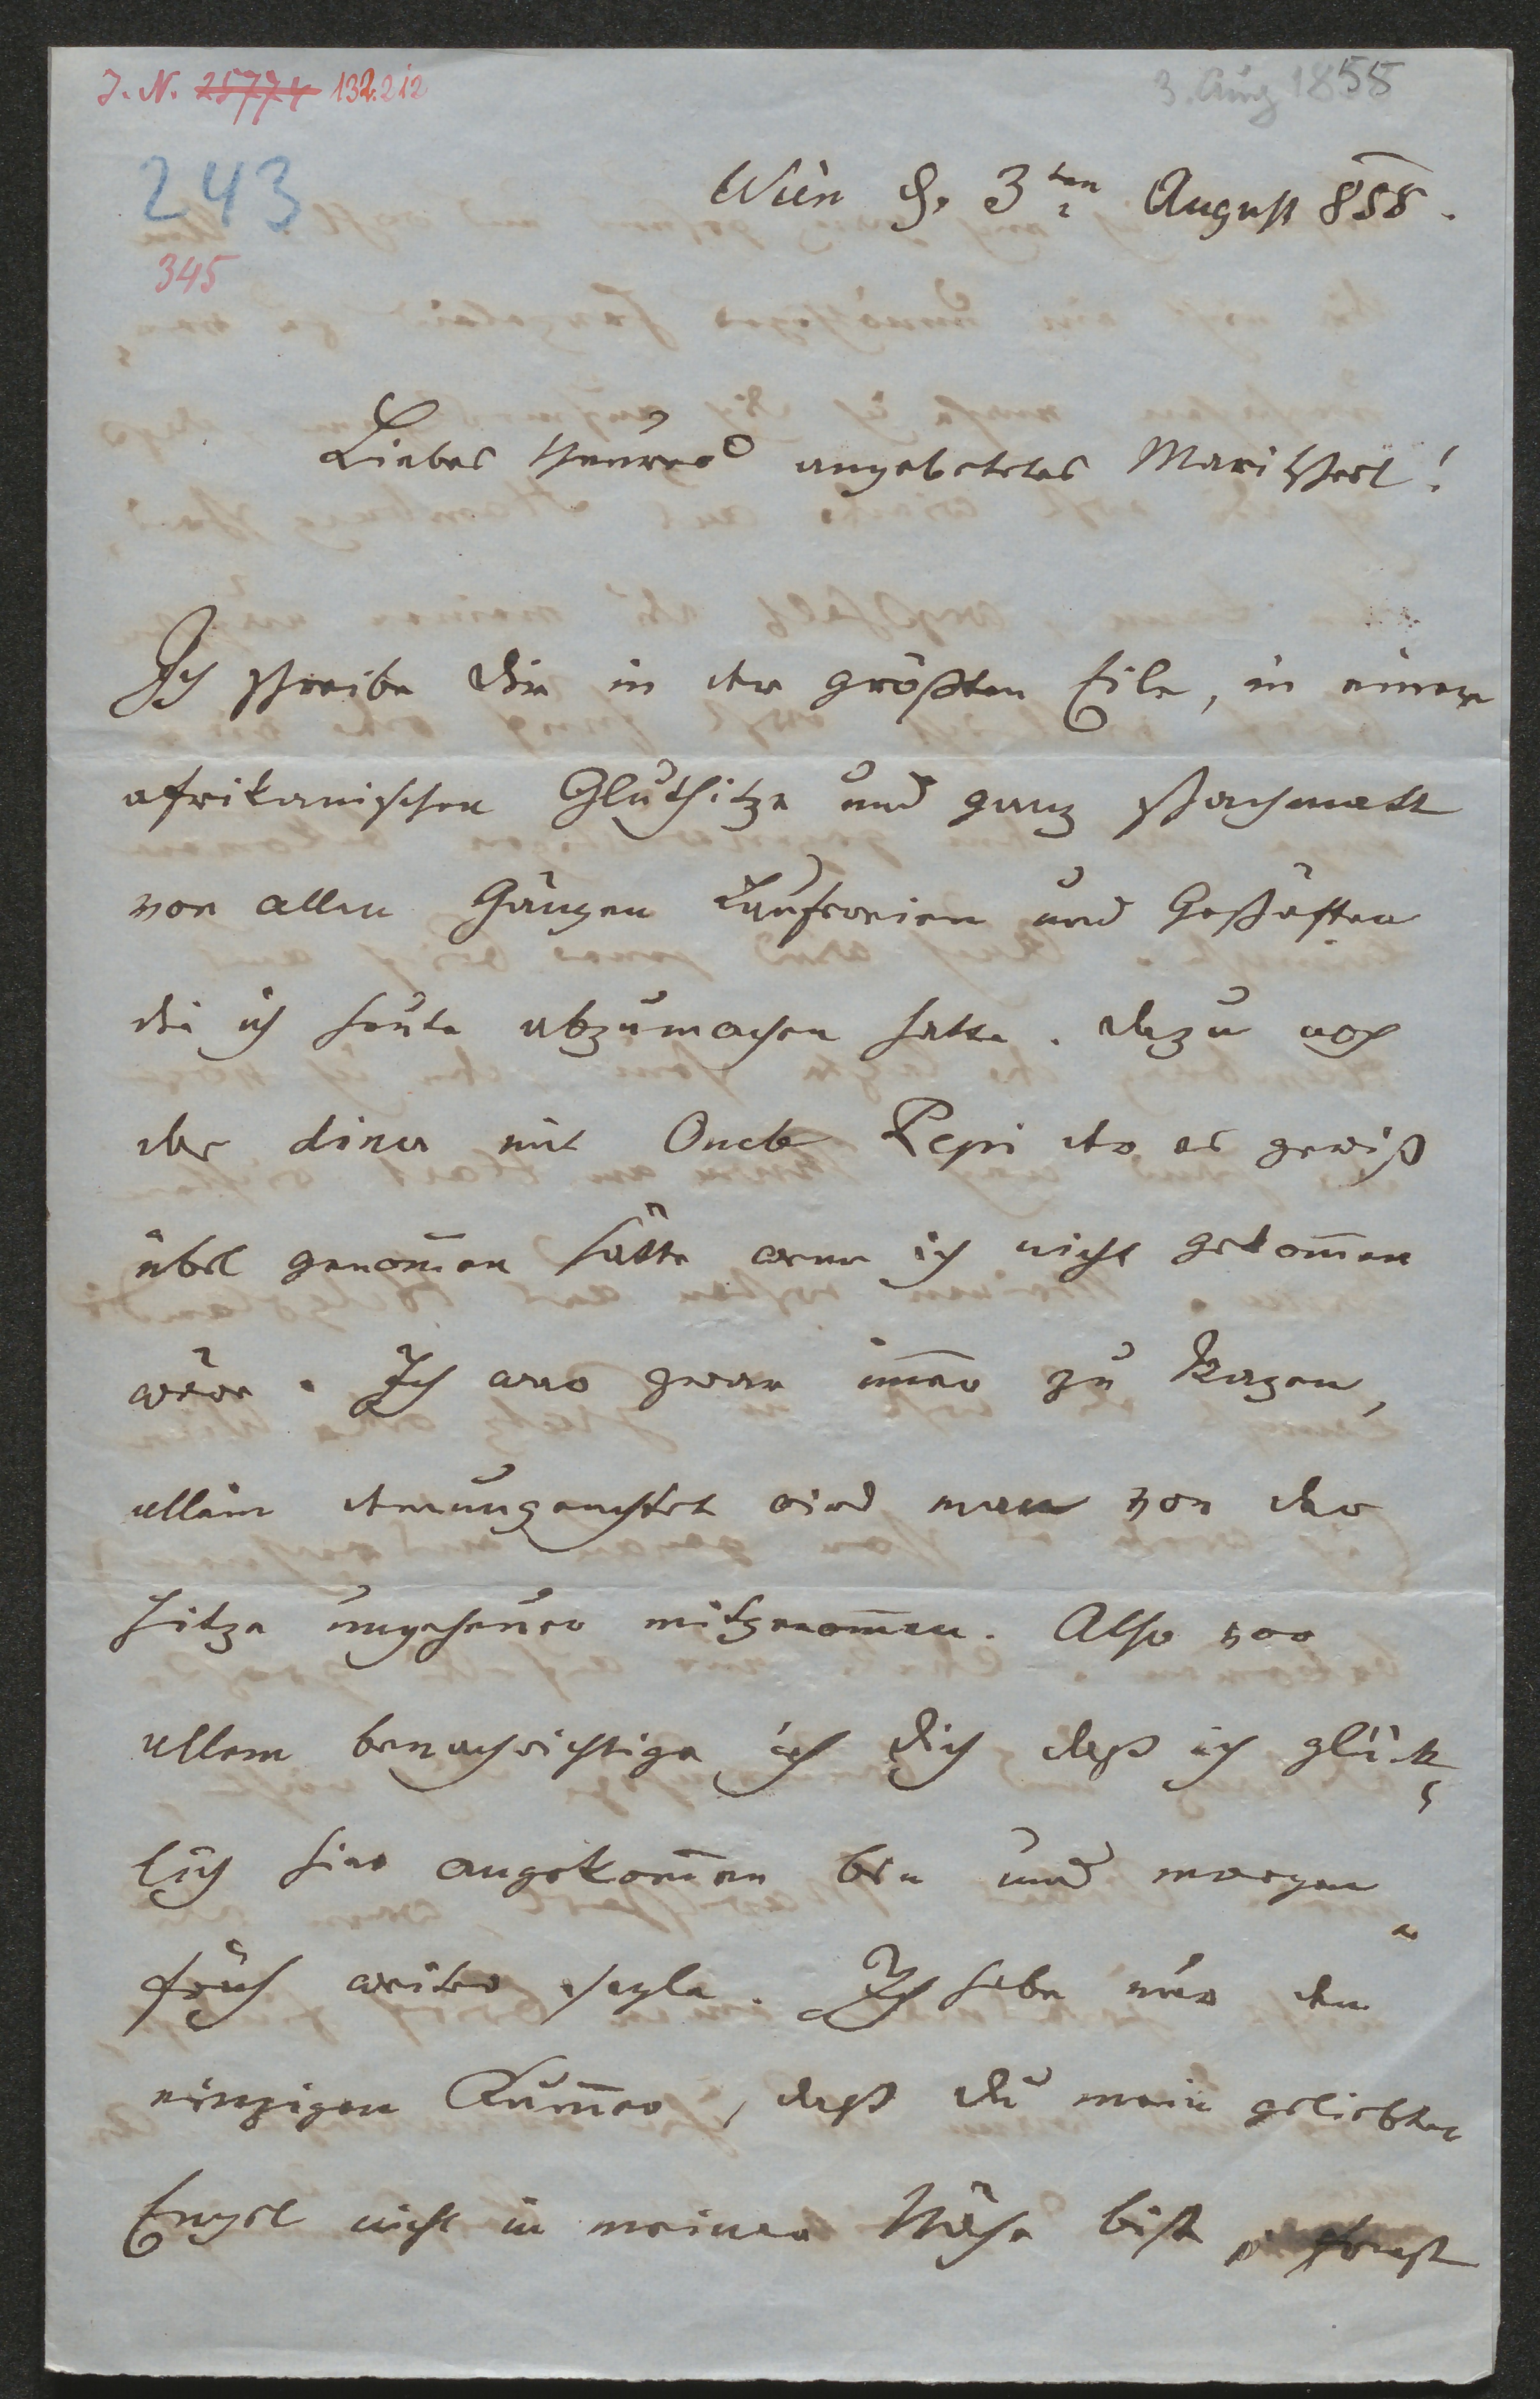 J. N. 25774 132.212
3. Aug 1858
243
345
Wien d. 3ten August 858.
Liebes theures angebetetes Maritscherl!
Ich schreibe dir in der größten Eile, in einer
afrikanischen Gluthitze und ganz schachmatt
von allen Gängen Laufereien und Geschäften
die ich heute abzumachen hatte. dazu noch
das diner mit Oncle Pepi der es gewiß
übel genom̅en hätte wenn ich nicht gekom̅en
wäre. Ich war zwar im̅er zu Wagen,
allein demungeachtet wird man von der
Hitze ungeheuer mitgenom̅en. Also vor
allem benachrichtige ich dich daß ich glück-
lich hier angekom̅en bin und morgen
früh weiter segle. Ich habe nur den
einzigen Kum̅er, daß du mein geliebter
Engel nicht in meiner Nähe bist, sonst